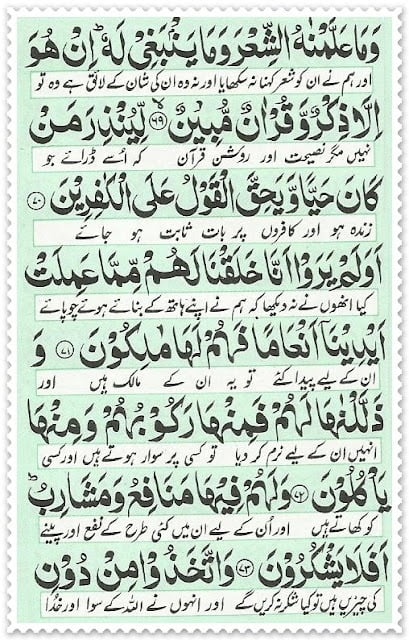 وَمَا عَلَّمْنٰهُ الشِّعْرَ وَمَا يَنْۢبَغِيْ لَهٗ ؕ اِنْ هُوَ
اور ہم نے ان کو شعر کہنا نہ سکھایا اور نہ وہ ان کی شان کے لائق ہے وہ تو
اِلَّا ذِكْرٌ وَّقُرْاٰنٌ مُّبِيْنٌ ۙ‏﴿۶۹﴾ لِّيُنْذِرَ مَنْ
نہیں مگر نصیحت اور روشن قرآن کہ اُسے ڈرائے جو
كَانَ حَيًّا وَّيَحِقَّ الْقَوْلُ عَلَى الْكٰفِرِيْنَ ﴿۷۰﴾
زندہ ہو اور کافروں پر بات ثابت ہو جائے
اَوَلَمْ يَرَوْا اَنَّا خَلَقْنَا لَهُمْ مِّمَّا عَمِلَتْ
کیا انھوں نے نہ دیکھا کہ ہم نے اپنے ہاتھ کے بنائے ہوئے چوپائے
اَيْدِيْنَاۤ اَنْعَامًا فَهُمْ لَهَا مٰلِكُوْنَ ﴿۷۱﴾ وَ
ان کے لیے پیدا کئے تو یہ ان کے مالک ہیں اور
ذَلَّلْنٰهَا لَهُمْ فَمِنْهَا رَكُوْبُهُمْ وَمِنْهَا
انہیں ان کے لیے نرم کر دیا تو کسی پر سوار ہوتے ہیں اور کسی
يَاْكُلُوْنَ ﴿۷۲﴾ وَلَهُمْ فِيْهَا مَنَافِعُ وَمَشَارِبُ ؕ
کو کھاتے ہیں اور اُن کے لیے ان میں کئی طرح کے نفع اور پینے
اَفَلَا يَشْكُرُوْنَ ﴿۷۳﴾ وَاتَّخَذُوْا مِنْ دُوْنِ
کی چیزیں ہیں تو کیا شکر نہ کریں گے اور انہوں نے اللہ کے سوا اور خدا